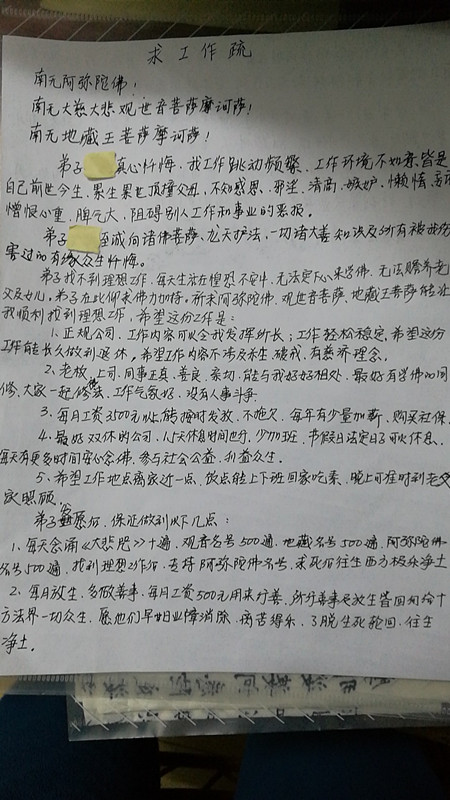 求工作疏
南无阿弥陀佛!
南无大慈大悲观世音菩萨摩诃萨!
南无地藏王菩萨摩诃萨!
弟子 真心忏悔,我工作跳动频繁、工作环境不如意,皆是
自己前世今生,累生累世顶撞父母,不知感恩、邪淫、清高、嫉妒、懒惰、
憎恨心重、脾气大,阻碍别人工作和事业的恶报。
弟子 至诚向诸佛菩萨、龙天护法,一切诸大善知识及所有被我伤
害过的有缘众生忏悔。
弟子找不到理想工作,每天生活在惶恐不安中,无法定下心来学佛,无法赡养老
父及女儿,弟子在此仰求佛力加持,祈求阿弥陀佛、观世音菩萨、地藏王菩萨能让
我顺利找到理想工作,希望这份工作是:
1.正规公司,工作内容可以令我发挥所长;工作轻松稳定,希望这份
工作能长久做到退休,希望工作内容不涉及杀生破戒,有慈济理念。
2、老板、上司、同事正真、善良、亲切,能与我好好相处,最好有学佛的同
修,大家一起修佛,工作气氛好,没有人事斗争。
3、每月工资3500元以上能按时发放,不拖欠,每年有少量加薪、购买社保。
4、最好双休的公司,以白天休息时间也行,少加班,节假日法定日子可以休息,
每天有更多时间安心念佛,参与社会公益,利益众生。
5、希望工作地点离家近一点,饭点能上下班回家吃素,晚上可准时到老父
家照顾。
弟子发愿后,保证做到以下几点:
1、每天念诵《大悲咒》十遍,观音名号500遍,地藏名号500遍,阿弥陀佛
名号500遍,找到理想工作后,坚持阿弥陀佛名号,求死后往生西方极乐净土
2、每月放生,多做善事,每月工资500元用来行善,所行善事及放生皆回向给十
方法界一切众生,愿他们早日业障消除,离苦得乐,了脱生死轮回,往生
净土。